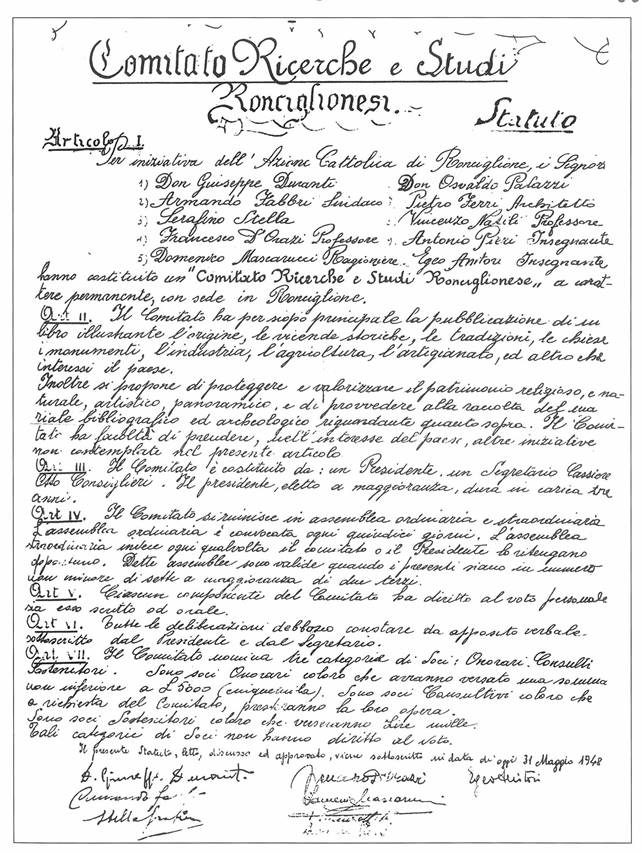 Comitato Ricerche e Studi
Ronciglionesi.
Statuto
Articolo I
Per iniziativa dell'Azione Cattolica di Ronciglione, i Signori
1) Don Giuseppe Duranti Don Osvaldo Palazzi
2) Armando Fabbri Sindaco Pietro Ferri Architetto
3) Serafino Stella Vincenzo Natili Professore
4) Francesco D'Orazi Professore Antonio Pieri Insegnante
5) Domenico Mascarucci Ragioniere Egeo Anitori Insegnante
hanno costituito un "Comitato Ricerche e Studi Ronciglionese" a carat-
tere permanente, con sede in Ronciglione.
Art II. Il Comitato ha per scopo principale la pubblicazione di un
libro illustrante l'origine, le vicende storiche, le tradizioni, le chiese
i monumenti, l'industria, l'agricoltura, l'artigianato, ed altro che
interessi il paese.
Inoltre si propone di proteggere e valorizzare il patrimonio religioso, e na-
turale, artistico, panoramico, e di provvedere alla raccolta del ma
teriale bibliografico ed archeologico riguardante quanto sopra. Il Comi-
tato ha facoltà di prendere, nell'interesse del paese, altre iniziative
non contemplate nel presente articolo
Art III. Il Comitato è costituito da: un Presidente. un Segretario Cassiere
Otto Consiglieri. Il presidente, eletto a maggioranza, dura in carica tre
anni.
Art IV. Il Comitato si riunisce in assemblea ordinaria e straordinaria
L'assemblea ordinaria è convocata ogni quindici giorni. L'assemblea
straordinaria invece ogni qualvolta il comitato o il Presidente lo ritengano
opportuno. Dette assemblee sono valide quando i presenti siano in numero
non minore di sette a maggioranza di due terzi.
Art V. Ciascun componente del Comitato ha diritto al voto personale
sia esso scritto od orale.
Art VI. Tutte le deliberazioni debbono constare da apposito verbale
sottoscritto dal Presidente e dal Segretario.
Art VII. Il Comitato nomina tre categorie di Soci: Onorari. Consulti
Sostenitori. Sono soci Onorari coloro che avranno versato una somma
non inferiore a £ 5000 (cinquemila). Sono soci Consultivi coloro che
a richiesta del Comitato, presteranno la loro opera.
Sono soci Sostenitori coloro che verseranno Lire mille.
Tali categorie di Soci non hanno diritto al voto.
Il presente Statuto, letto, discusso ed approvato, viene sottoscritto in data di oggi 31 Maggio 1948